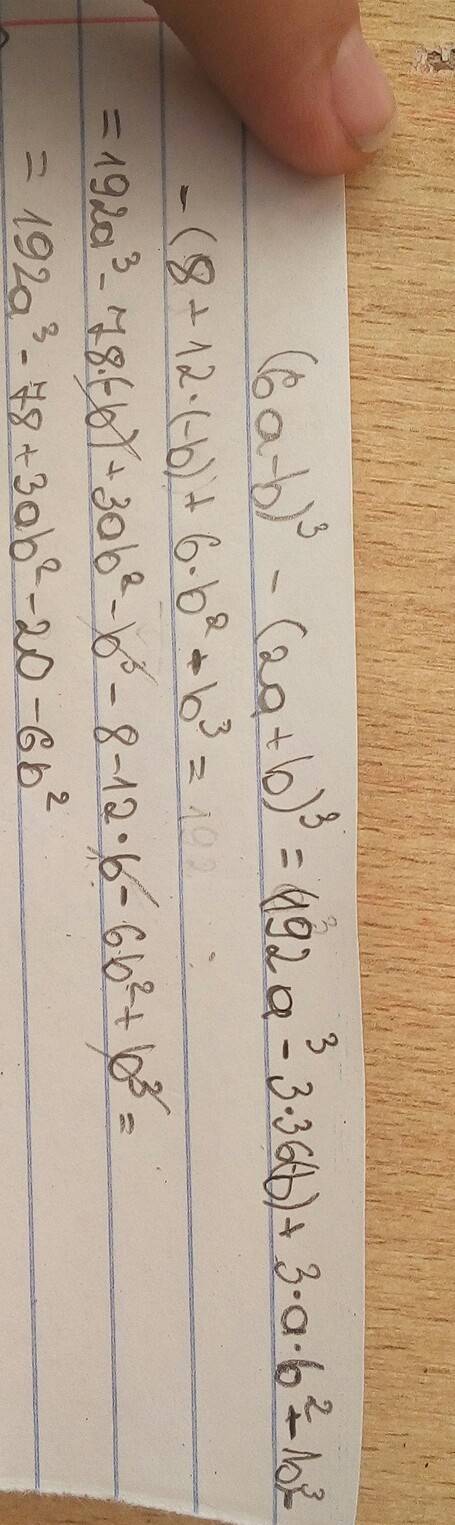 (6a-b)³ - (2a+b)³ = (192a³ - 3·36(-b) + 3·a·b² - b³ -
- (8 + 12·(-b) + 6·b² + b³ = 192
= 192a³ - 78·(-b) + 3ab² - b³ - 8 - 12·b - 6b² + b³ =
= 192a³ - 78 + 3ab² - 20 - 6b²